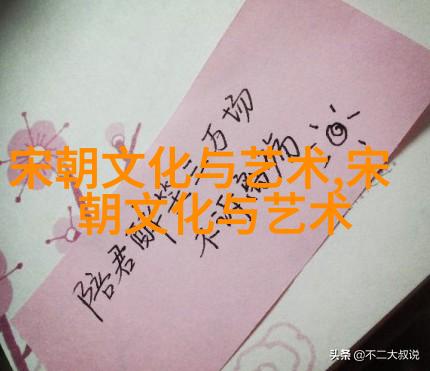 宋朝文化与艺术,宋
朝文化与艺术
陪君醉笑三万场
不诉离殇
头条 @不二大叔说